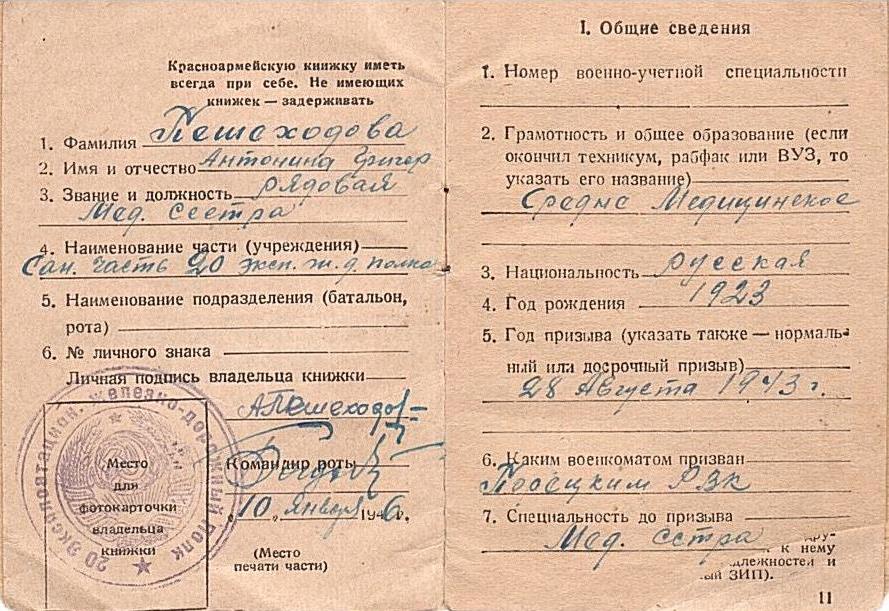 Красноармейскую книжку иметь
всегда при себе. Не имеющих
книжек — задерживать
1. Фамилия Пешеходова
2. Имя и отчество Антонина Григор
3. Звание и должность рядовая
Мед. сестра
4. Наименование части (учреждения)
Сан. часть 20 эксп. ж. д. полка
5. Наименование подразделения (батальон,
рота)
6. № личного знака
Личная подпись владельца книжки
АПешеходов
Командир роты
10 января 1946.
(Место
печати части)
Место
для
фотокарточки
владельца
книжки
20 эксплоатацион. железно-дорожный полк
I. Общие сведения
1. Номер военно-учетной специальности
2. Грамотность и общее образование (если
окончил техникум, рабфак или ВУЗ, то
указать его название)
Средне Медицинское
3. Национальность русская
4. Год рождения 1923
5. Год призыва (указать также — нормаль-
ный или досрочный призыв)
28 Августа 1943 г.
6. Каким военкоматом призван
РВК
7. Специальность до призыва
Мед. сестра
к нему
длежностей и
ый ЗИП).
11